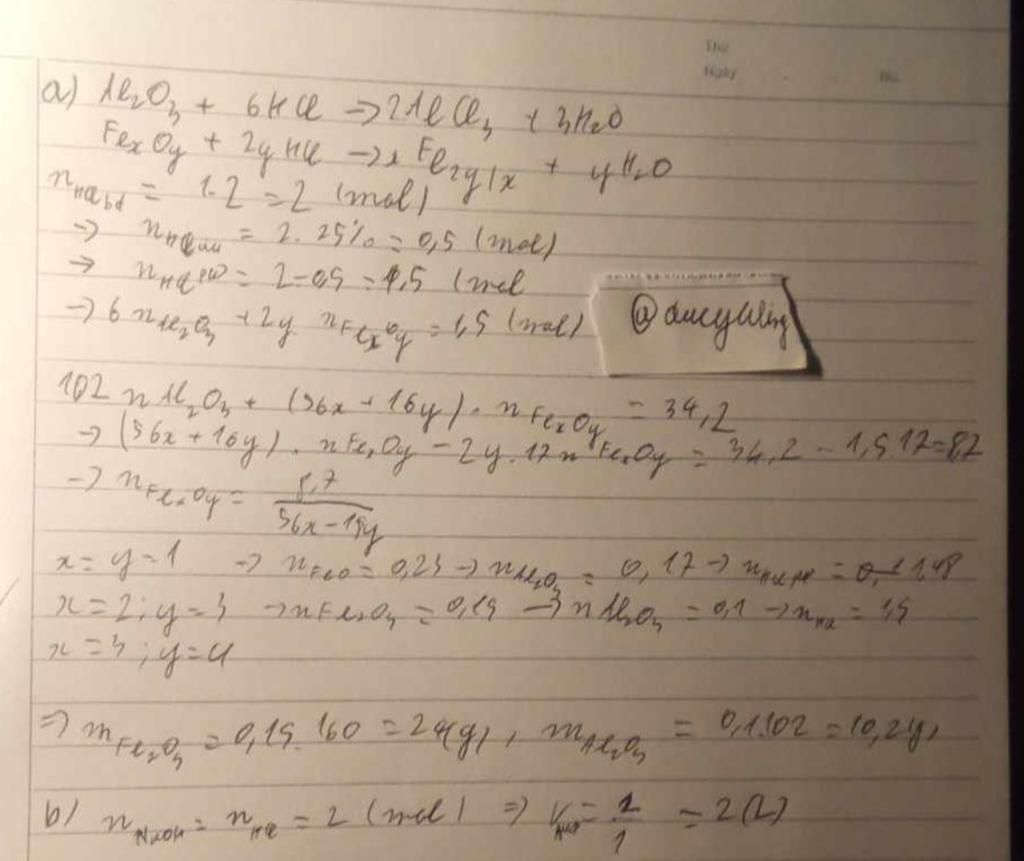 Thứ
Ngày No.
a) Al₂O₃ + 6HCl → 2AlCl₃ + 3H₂O
FexOy + 2yHCl → xFe2y/x + yH₂O
nHCl bđ = 1.2 = 2 (mol)
→ nHCl = 2.25% = 0,5 (mol)
→ nHCl pư = 2-0,5 = 1,5 (mol
→ 6nAl₂O₃ + 2y.nFexOy = 1,5 (mol)
@ducyuling
102nAl₂O₃ + (56x + 16y).nFexOy = 34,2
→ (56x + 16y).nFexOy - 2y.17nFexOy = 34,2 - 1,5.17 = 8,7
→ nFexOy = 8,7 / 56x - 18y
x = y = 1 → nFeO = 0,23 → nAl₂O₃ = 0,17 → nHCl pư = 1,48
x = 2; y = 3 → nFe₂O₃ = 0,15 → nAl₂O₃ = 0,1 → nHCl = 1,5
x = 3; y = 4
⇒ mFe₂O₃ = 0,15.160 = 24(g), mAl₂O₃ = 0,1.102 = 10,2g,
b) nNaOH = nHCl = 2 (mol) ⇒ V = 2/1 = 2(L)